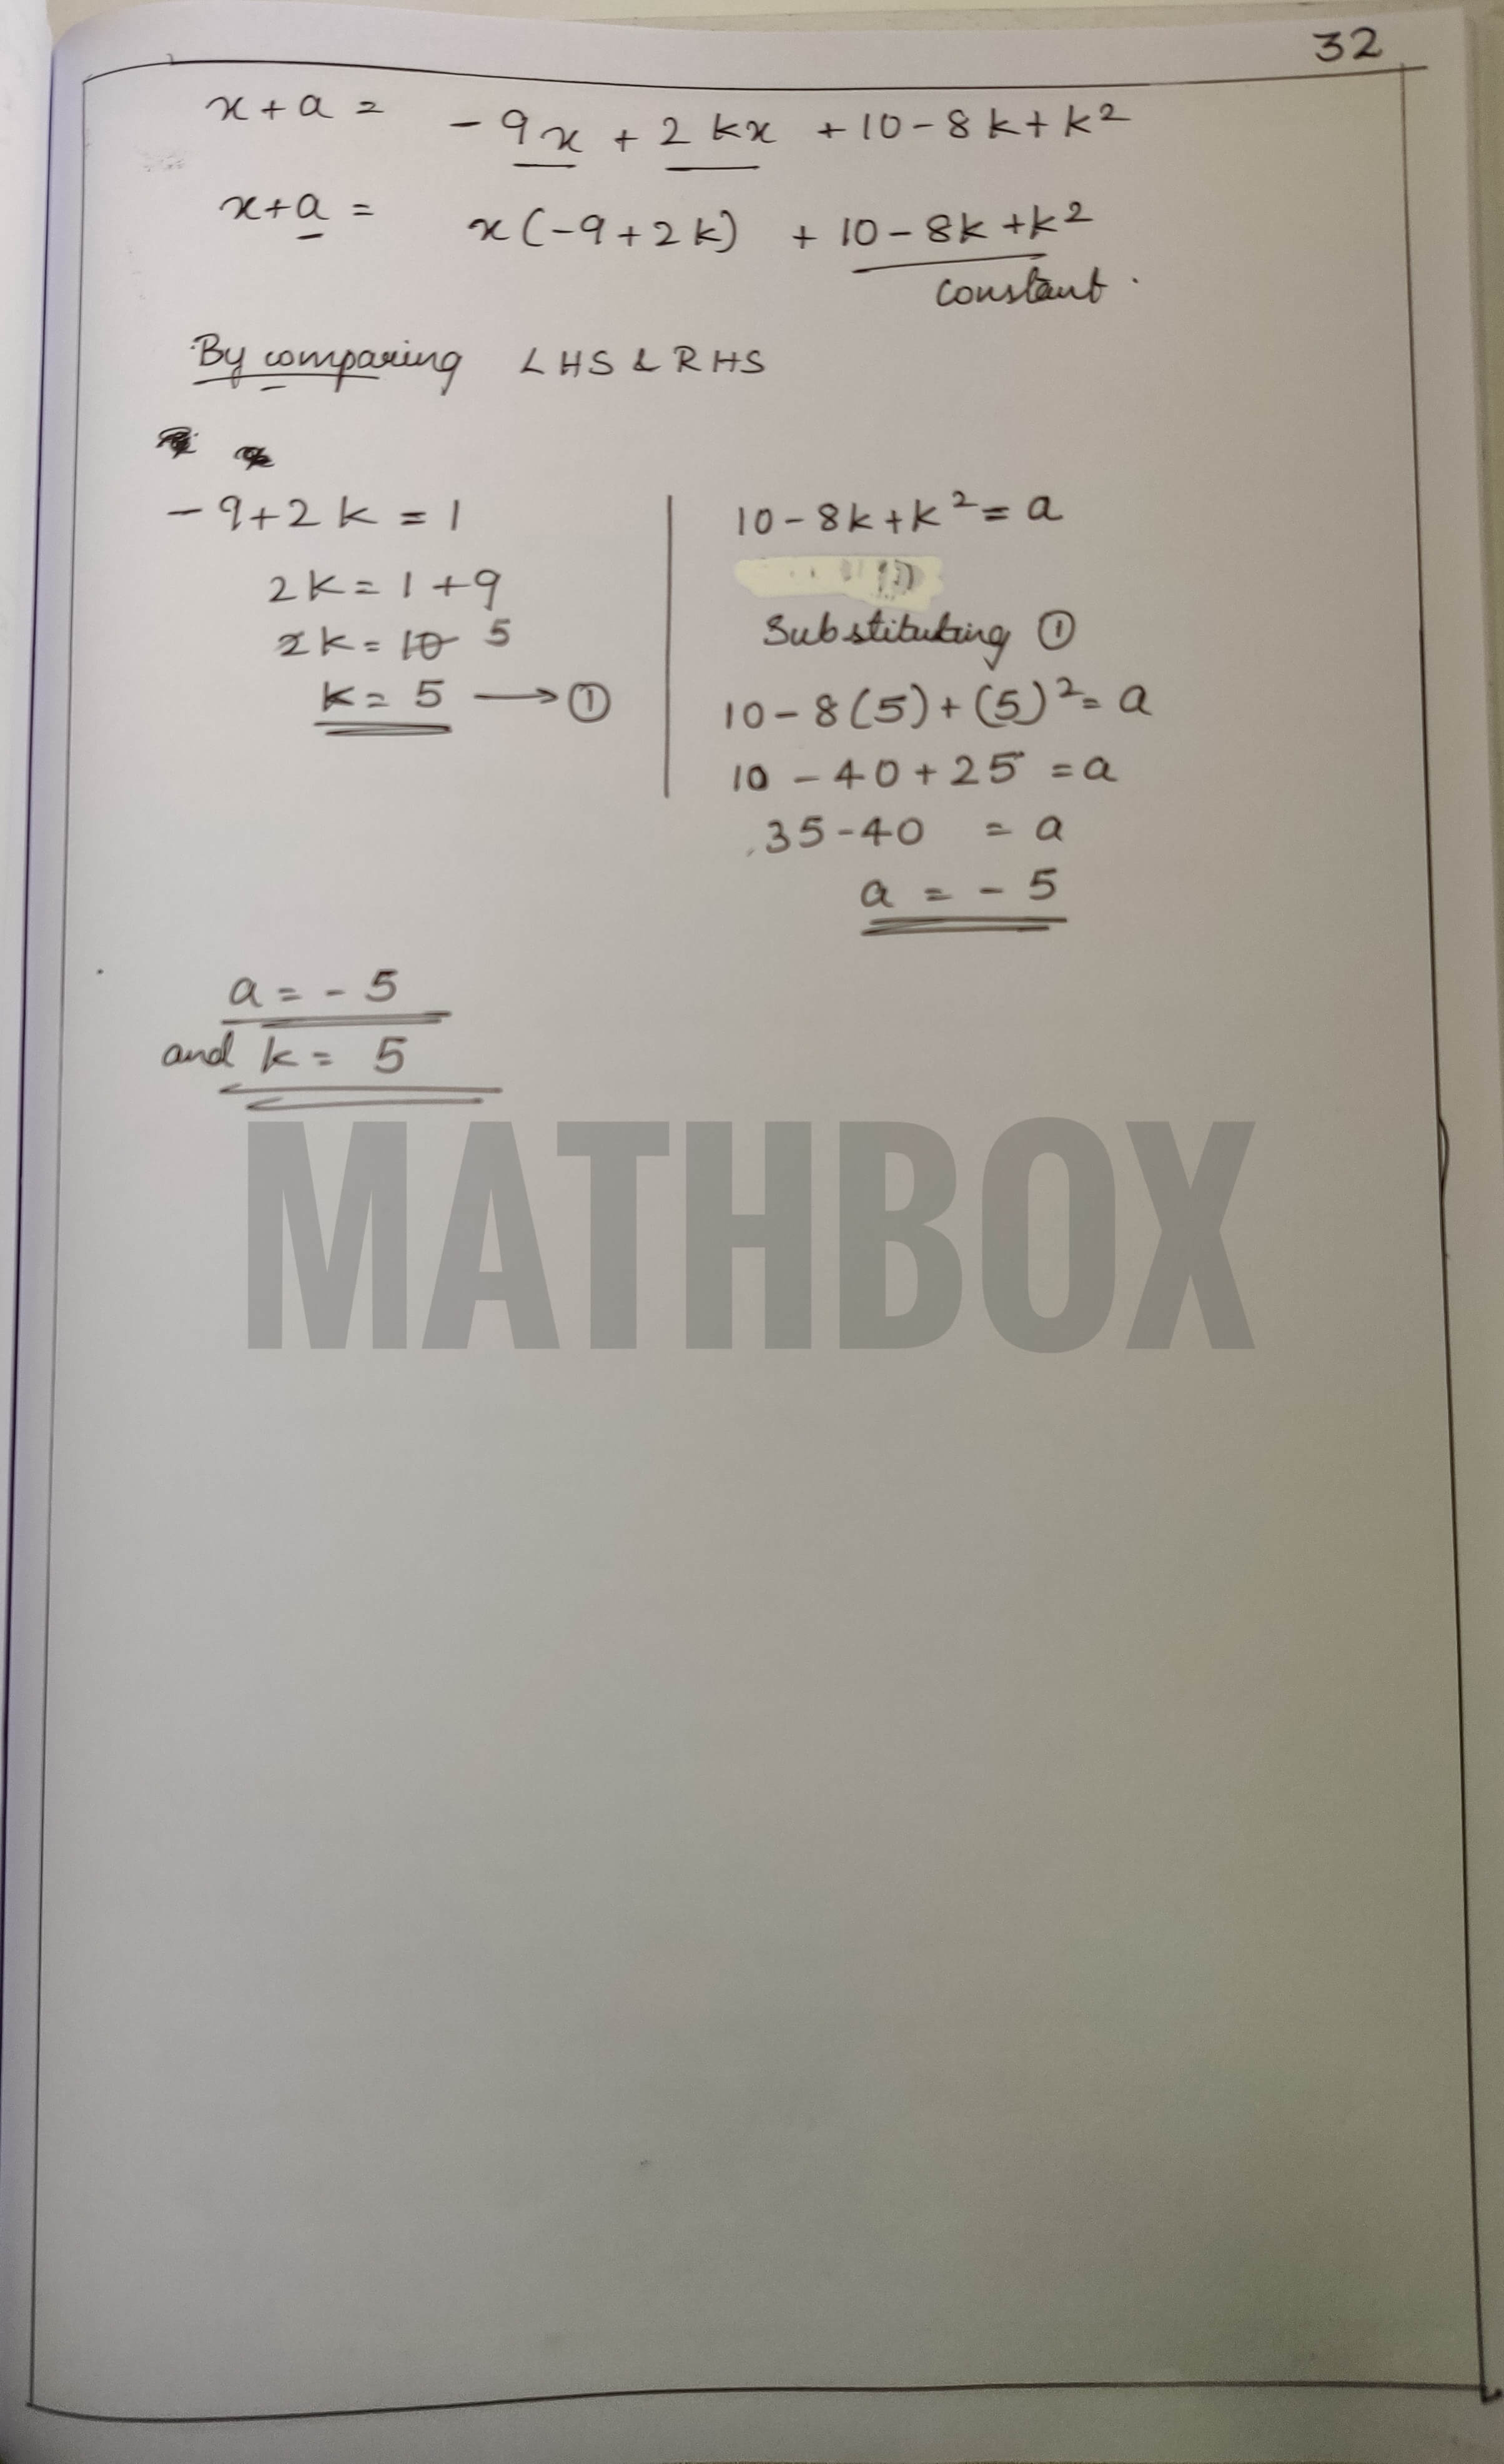 32
x + a = - 9x + 2kx + 10 - 8k + k²
x + a = x(-9 + 2k) + 10 - 8k + k²
constant.
By comparing LHS & RHS
- 9 + 2k = 1
2k = 1 + 9
2k = 10 5
k = 5 → ①
10 - 8k + k² = a
Substituting ①
10 - 8(5) + (5)² = a
10 - 40 + 25 = a
35 - 40 = a
a = - 5
a = - 5
and k = 5
MATHBOX